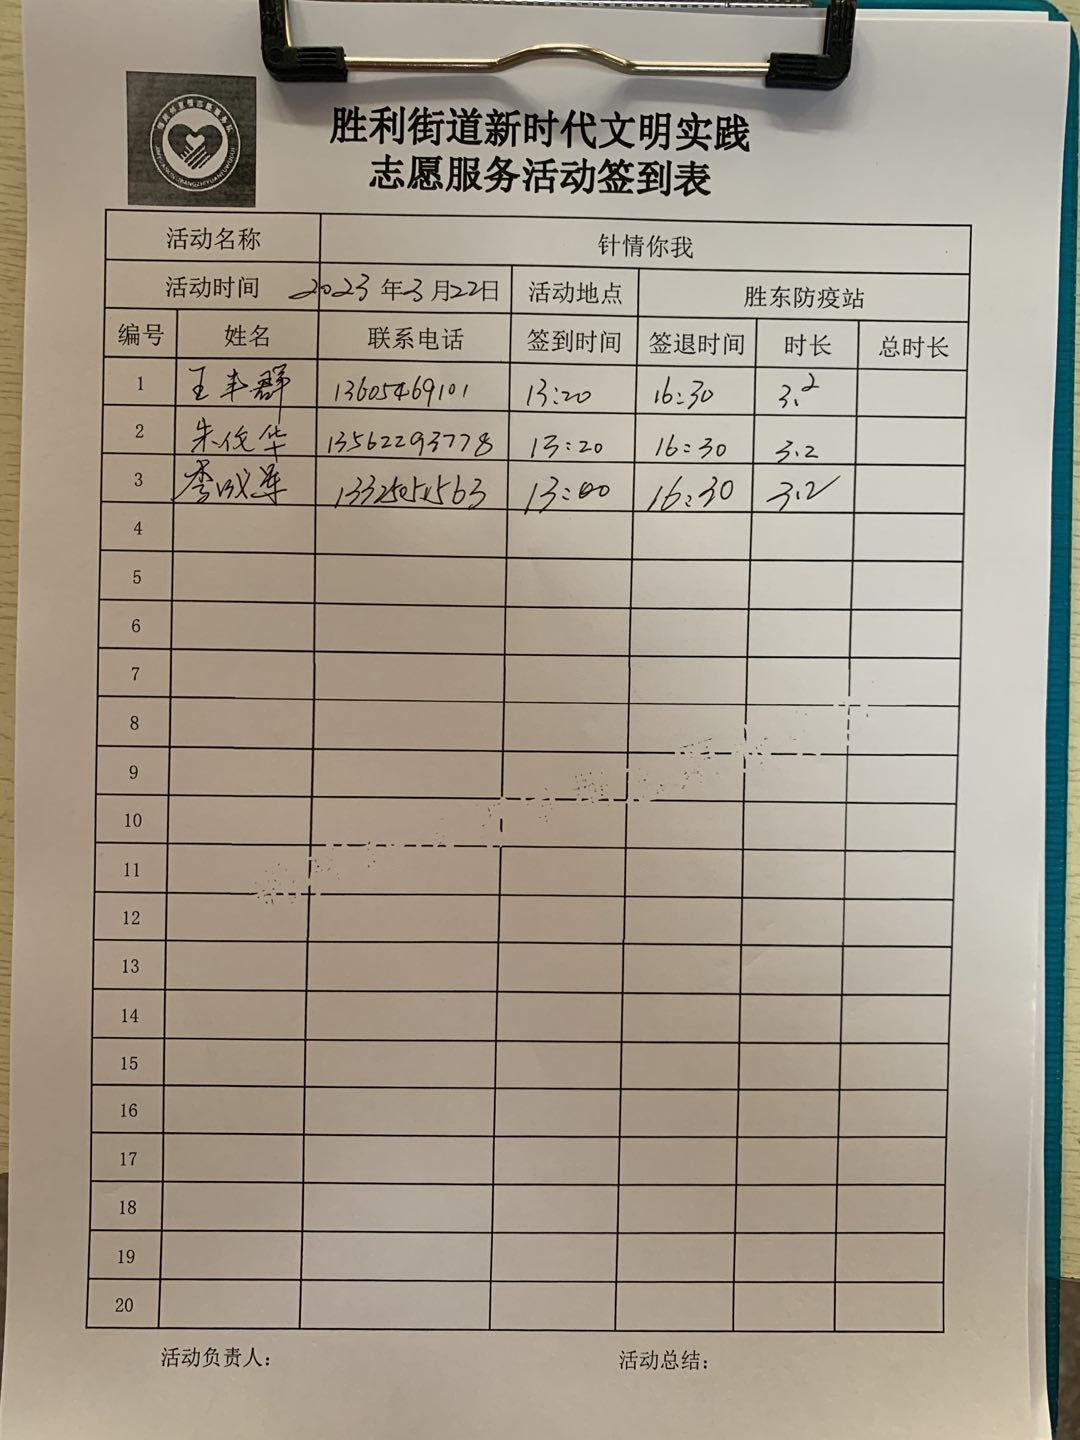 胜利街道新时代文明实践
志愿服务活动签到表
活动名称 针情你我
活动时间 2023年3月22日 活动地点 胜东防疫站
编号 姓名 联系电话 签到时间 签退时间 时长 总时长
1 王丰群 13605469101 13:20 16:30 3.2
2 朱俊华 13562293778 13:20 16:30 3.2
3 李成军 13:00 16:30 3.2
4
5
6
7
8
9
10
11
12
13
14
15
16
17
18
19
20
活动负责人： 活动总结：